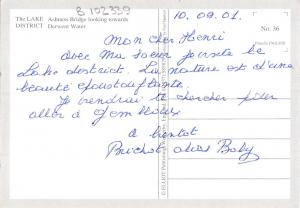 B 102339
The LAKE DISTRICT
Ashness Bridge looking towards
Derwent Water
10.09.01.
No. 36
Mon cher Henri
avec ma soeur je visite le
Lake district. La nature est d'une
beauté
Je viendrai te chercher pour
aller à Gembloux
a bientot
alias Baby